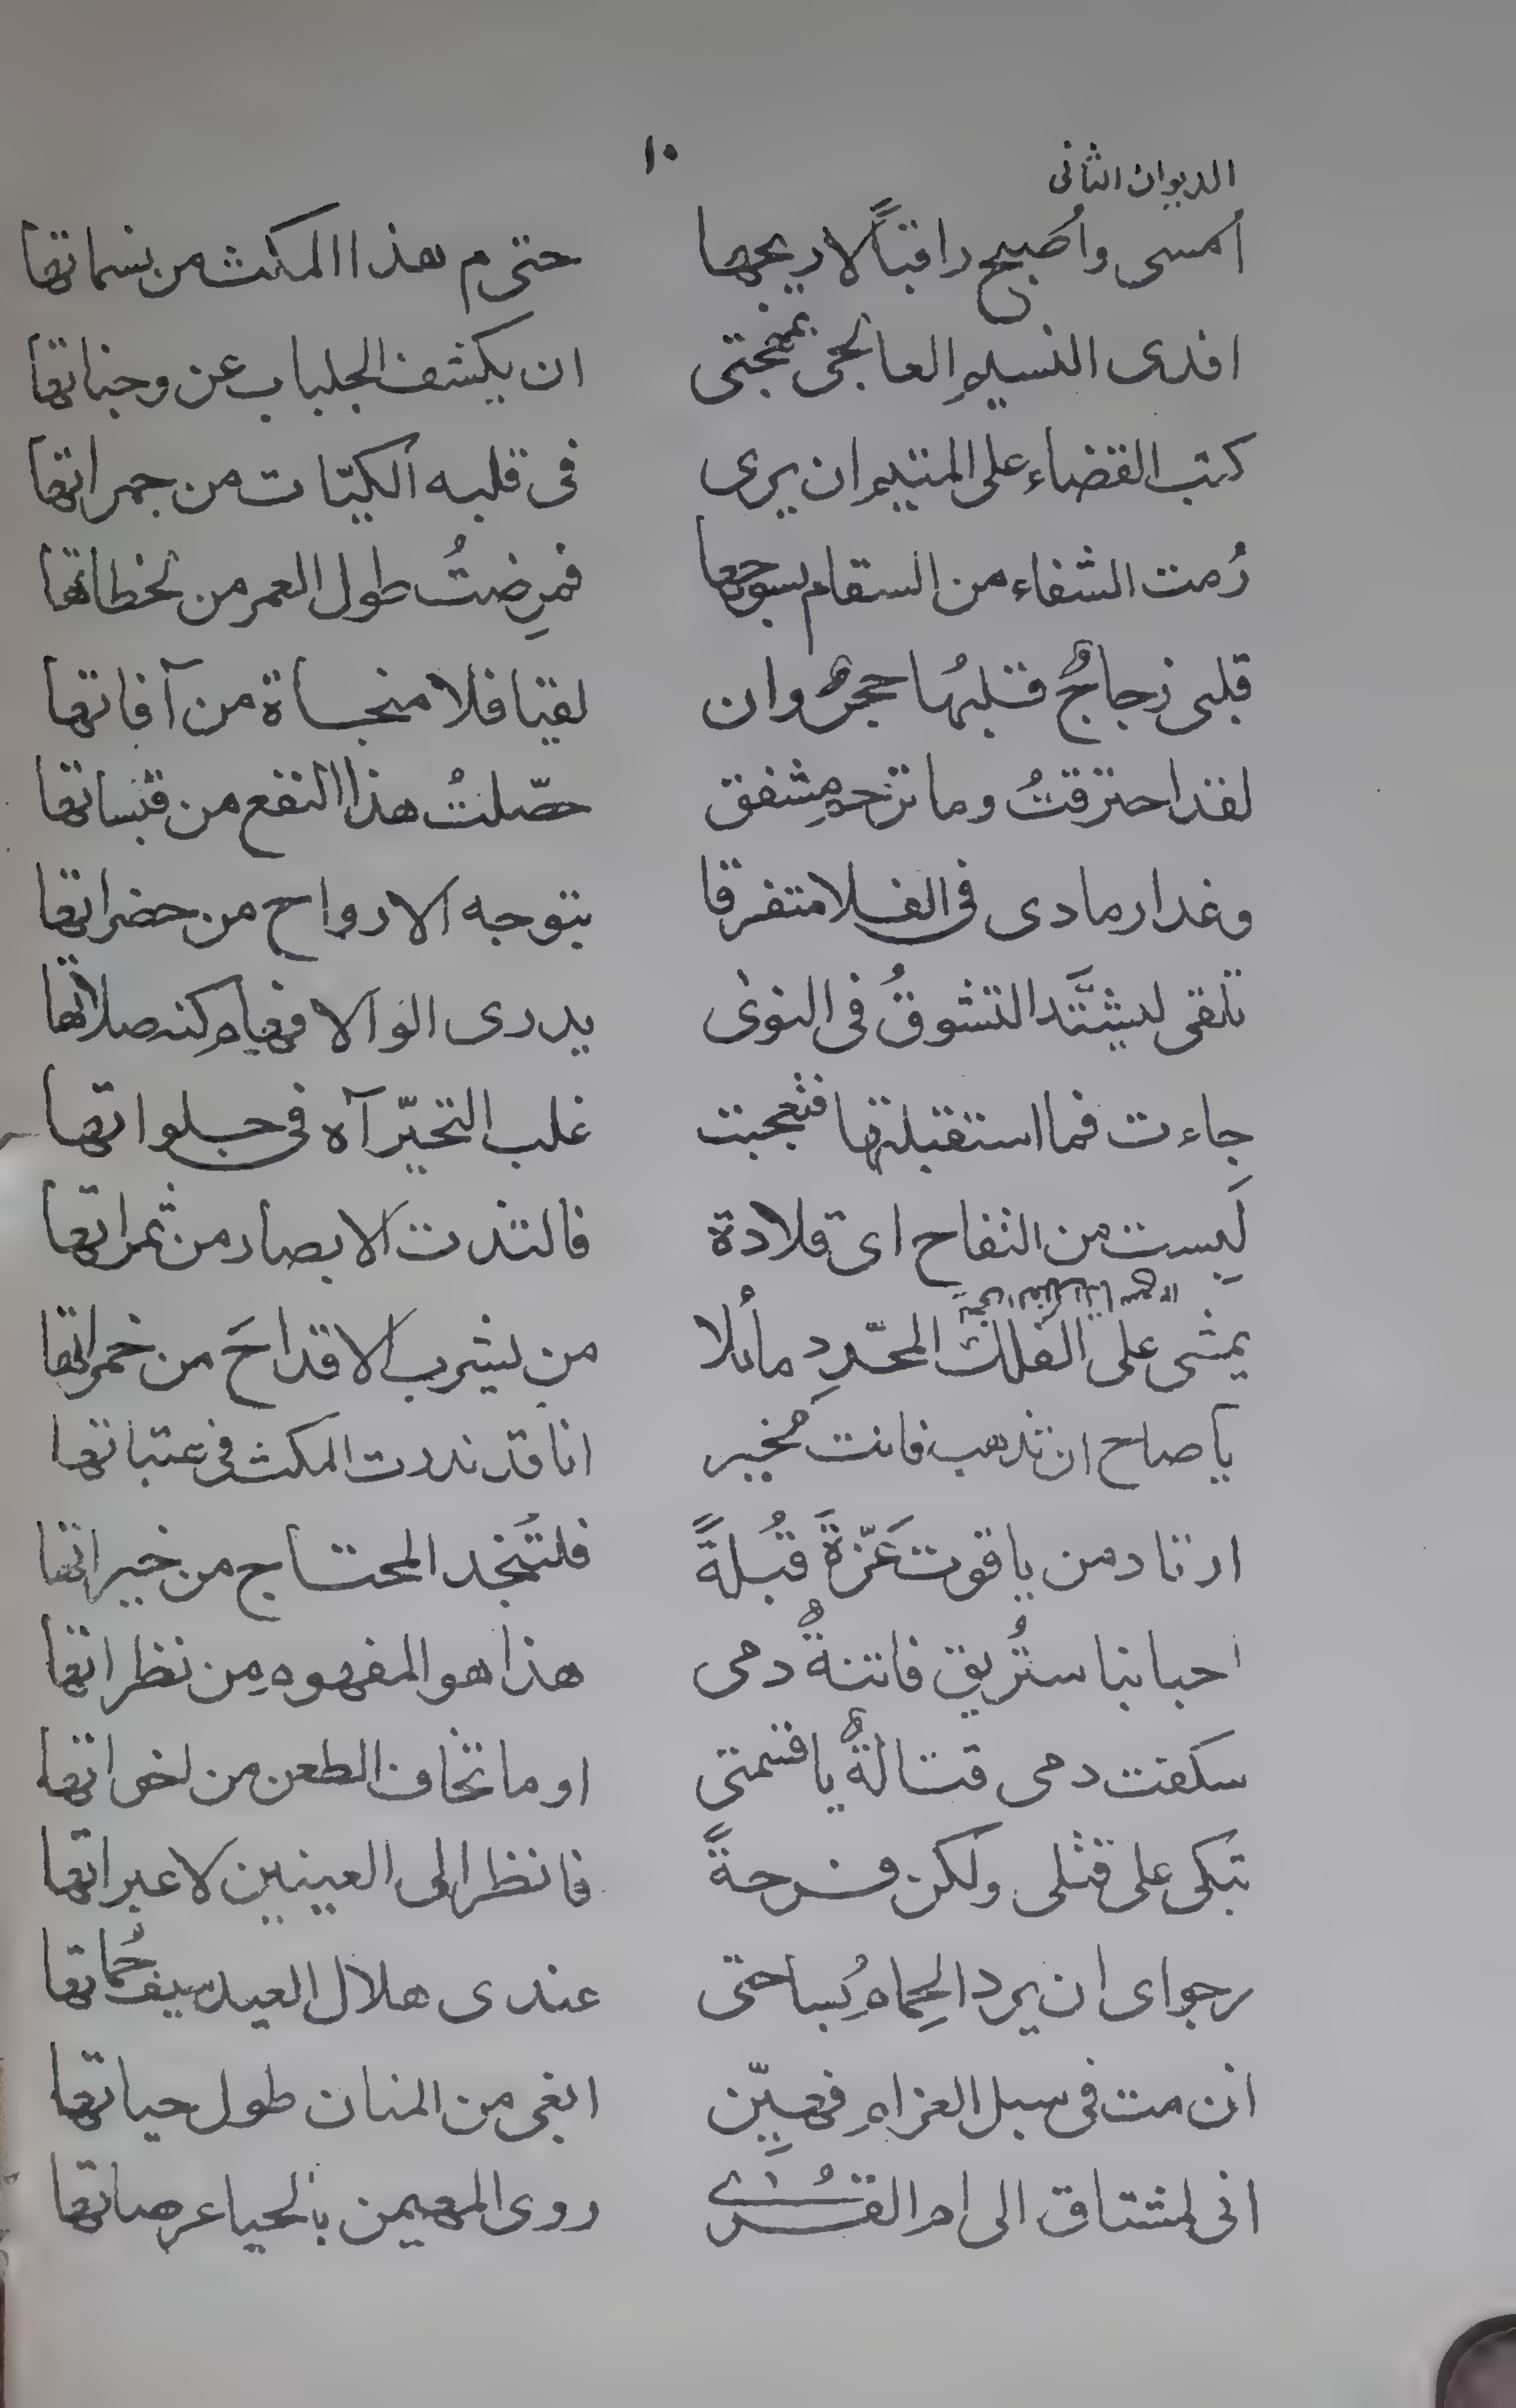 ١٠
الديوان الثانى
اُمسى واُصبح راقباً لاريجها حتى م هذا المكث من نسماتها
افدى النسيم العالجى بمهجتى ان يكشف الجلباب عن وجناتها
كتب القضاء على المتيم ان يرى فى قلبه الكيّات من جمراتها
رُمت الشفاء من السقام بسوحها فمرِضتُ طول العمر من لحظاتها
قلبى زجاجٌ قلبُها حجرٌ وان لقيا فلا منجاة من آفاتها
لقد احترقتُ وما ترحم مشفق حصّلتُ هذا النفع من قبساتها
وغدا رمادى فى الفلا متفرقا بتوجه الارواح من حضراتها
تلقى ليشتَّد التشوقُ فى النوى يدرى الوالا فهام كنه صلاتها
جاءت فما استقبلتها فتعجبت غلب التحيّر آه فى جلواتها
لَبِست من التفاح اى قلادة فالتذت الابصار من ثمراتها
يمشى على الفلك المحدّدِ مائلا من يشرب الاقداحَ من خمراتها
يا صاح ان تذهب فانت مُخير انا قد نذرت المكث فى عتباتها
ارتاد من ياقوت عَزّةَ قُبلةً فلتُنجد المحتاج من خيراتها
احبابنا ستُريق فاتنةٌ دمى هذا هو المفهوم من نظراتها
سكفت دمى قتالةٌ يا قسمتى او ما تخاف الطعن من اخواتها
تبكى على قتلى ولكن فرحةً فانظر الى العينين لا عبراتها
رجواى ان يرد الحِمامُ بساحتى عندى هلال العيد سيف حُماتها
ان مت فى سبل الغرام فهيِّن ابغى من المنان طول حياتها
انى لمشتاق الى ام القُرَى روى المهيمن بالحيا عرصاتها